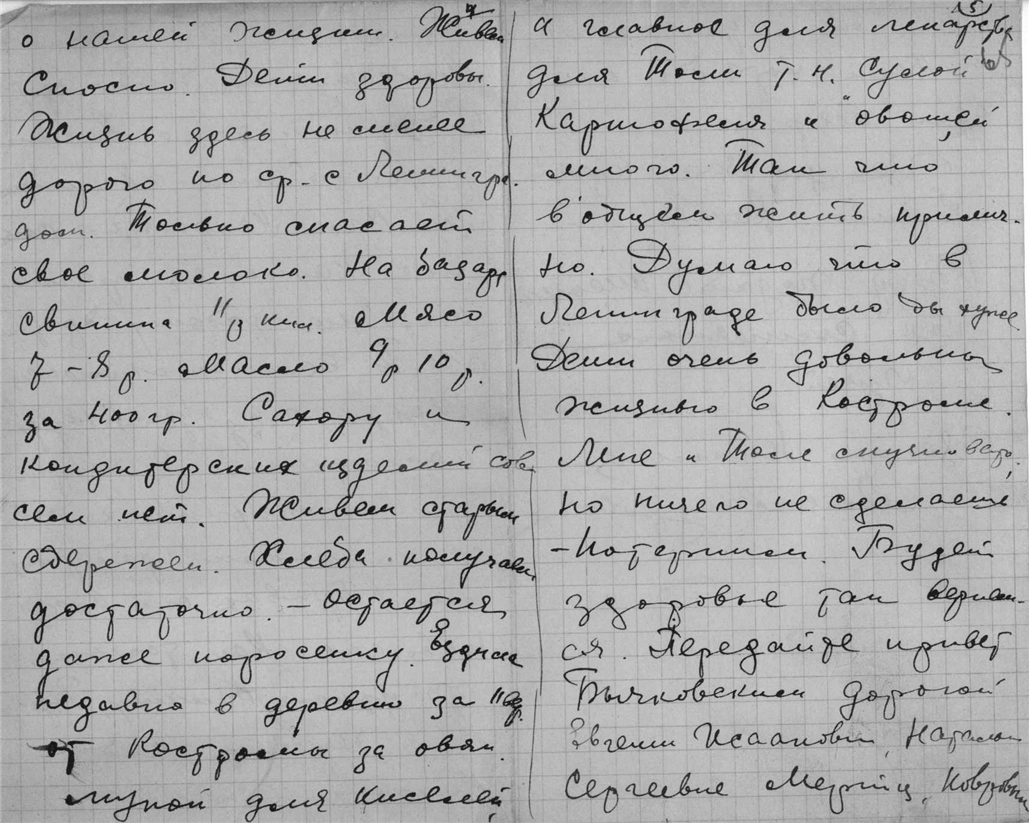 4
о нашей жизни. Живем
сносно. Дети здоровы.
Жизнь здесь не менее
дорого по ср. с Ленингра-
дом. Только спасает
свое молоко. На базаре
свинина 11 р кил. Мясо
7-8 р. Масло 9р 10 р.
за 400 гр. Сахару и
кондитерских изделий сов-
сем нет. Живем старым
сбережен. Хлеба получаем
достаточно - остается
даже поросенку. Ездила
недавно в деревню за 11
от Костромы за овян.
мукой для киселей,
5
а главное для лекарства
для Толи т. н. сулой
Картофеля и овощей
много. Так что
в общем жить прилич-
но. Думаю что в
Ленинграде было бы хуже.
Дети очень довольны
жизнью в Костроме.
Мне и Толе скучновато,
но ничего не сделаешь
- потерпим. Будет
здоровье так вернем-
ся. Передайте привет
Бычковским дорогой
Евгении Исааковне, Наталии
Сергеевне